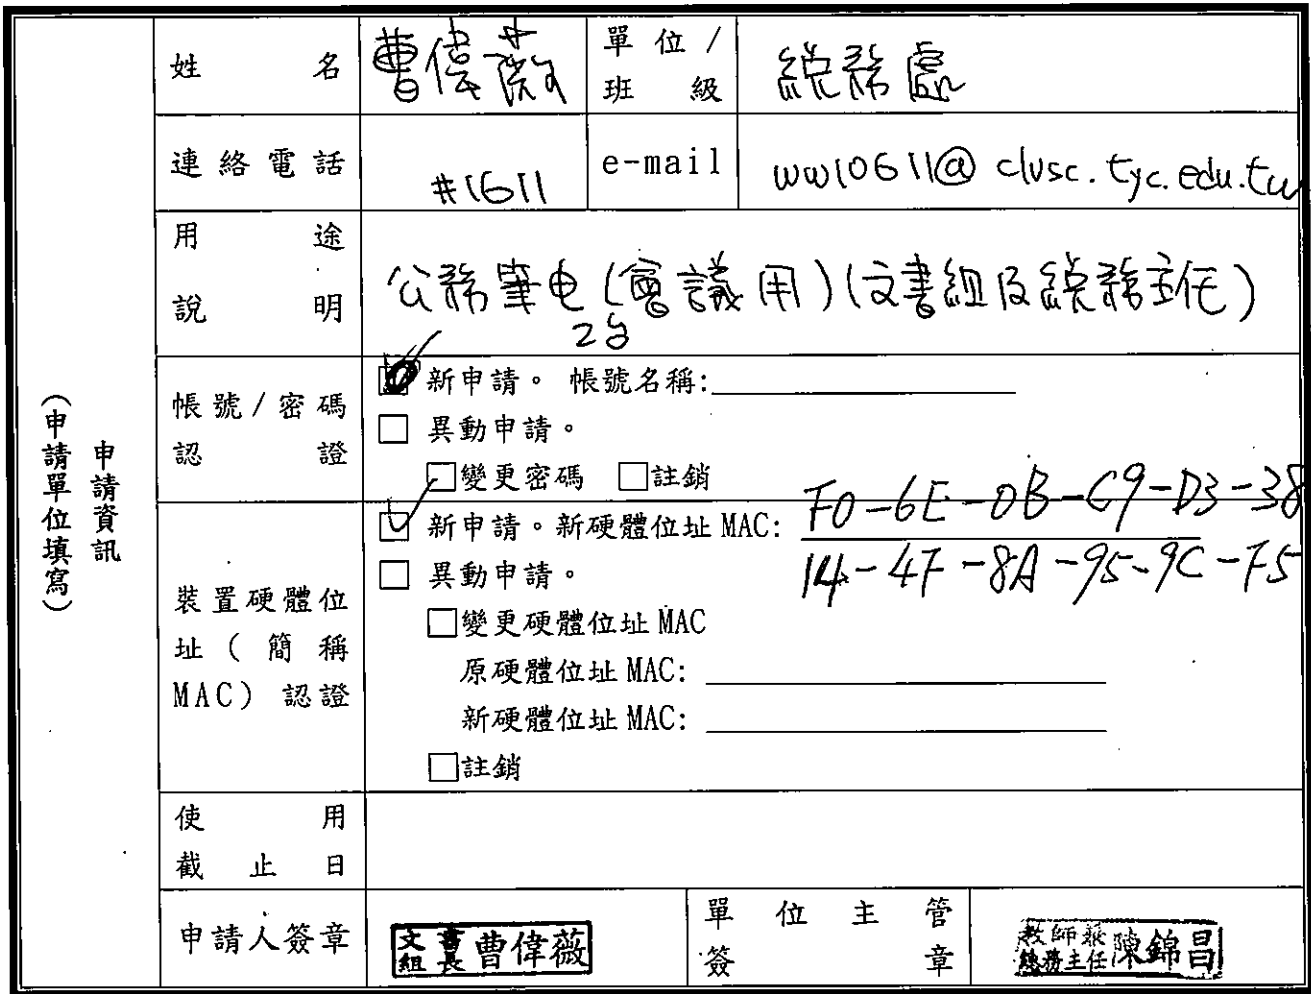 申請資訊
（申請單位填寫）
姓名 曹偉薇 單位/班級 總務處
連絡電話 #1611 e-mail ww10611@clvsc.tyc.edu.tw
用途說明 公務筆电(會議用)(文書組及總務主任)
2台
帳號/密碼認證
☑新申請。 帳號名稱:
□ 異動申請。
□變更密碼 □註銷
裝置硬體位址(簡稱MAC)認證
☑ 新申請。新硬體位址 MAC: F0-6E-0B-C9-D3-38
14-4F-8A-95-9C-F5
□ 異動申請。
□變更硬體位址 MAC
原硬體位址 MAC:
新硬體位址 MAC:
□註銷
使用截止日
申請人簽章 文書組長 曹偉薇 單位主管簽章 教師兼總務主任 陳錦昌